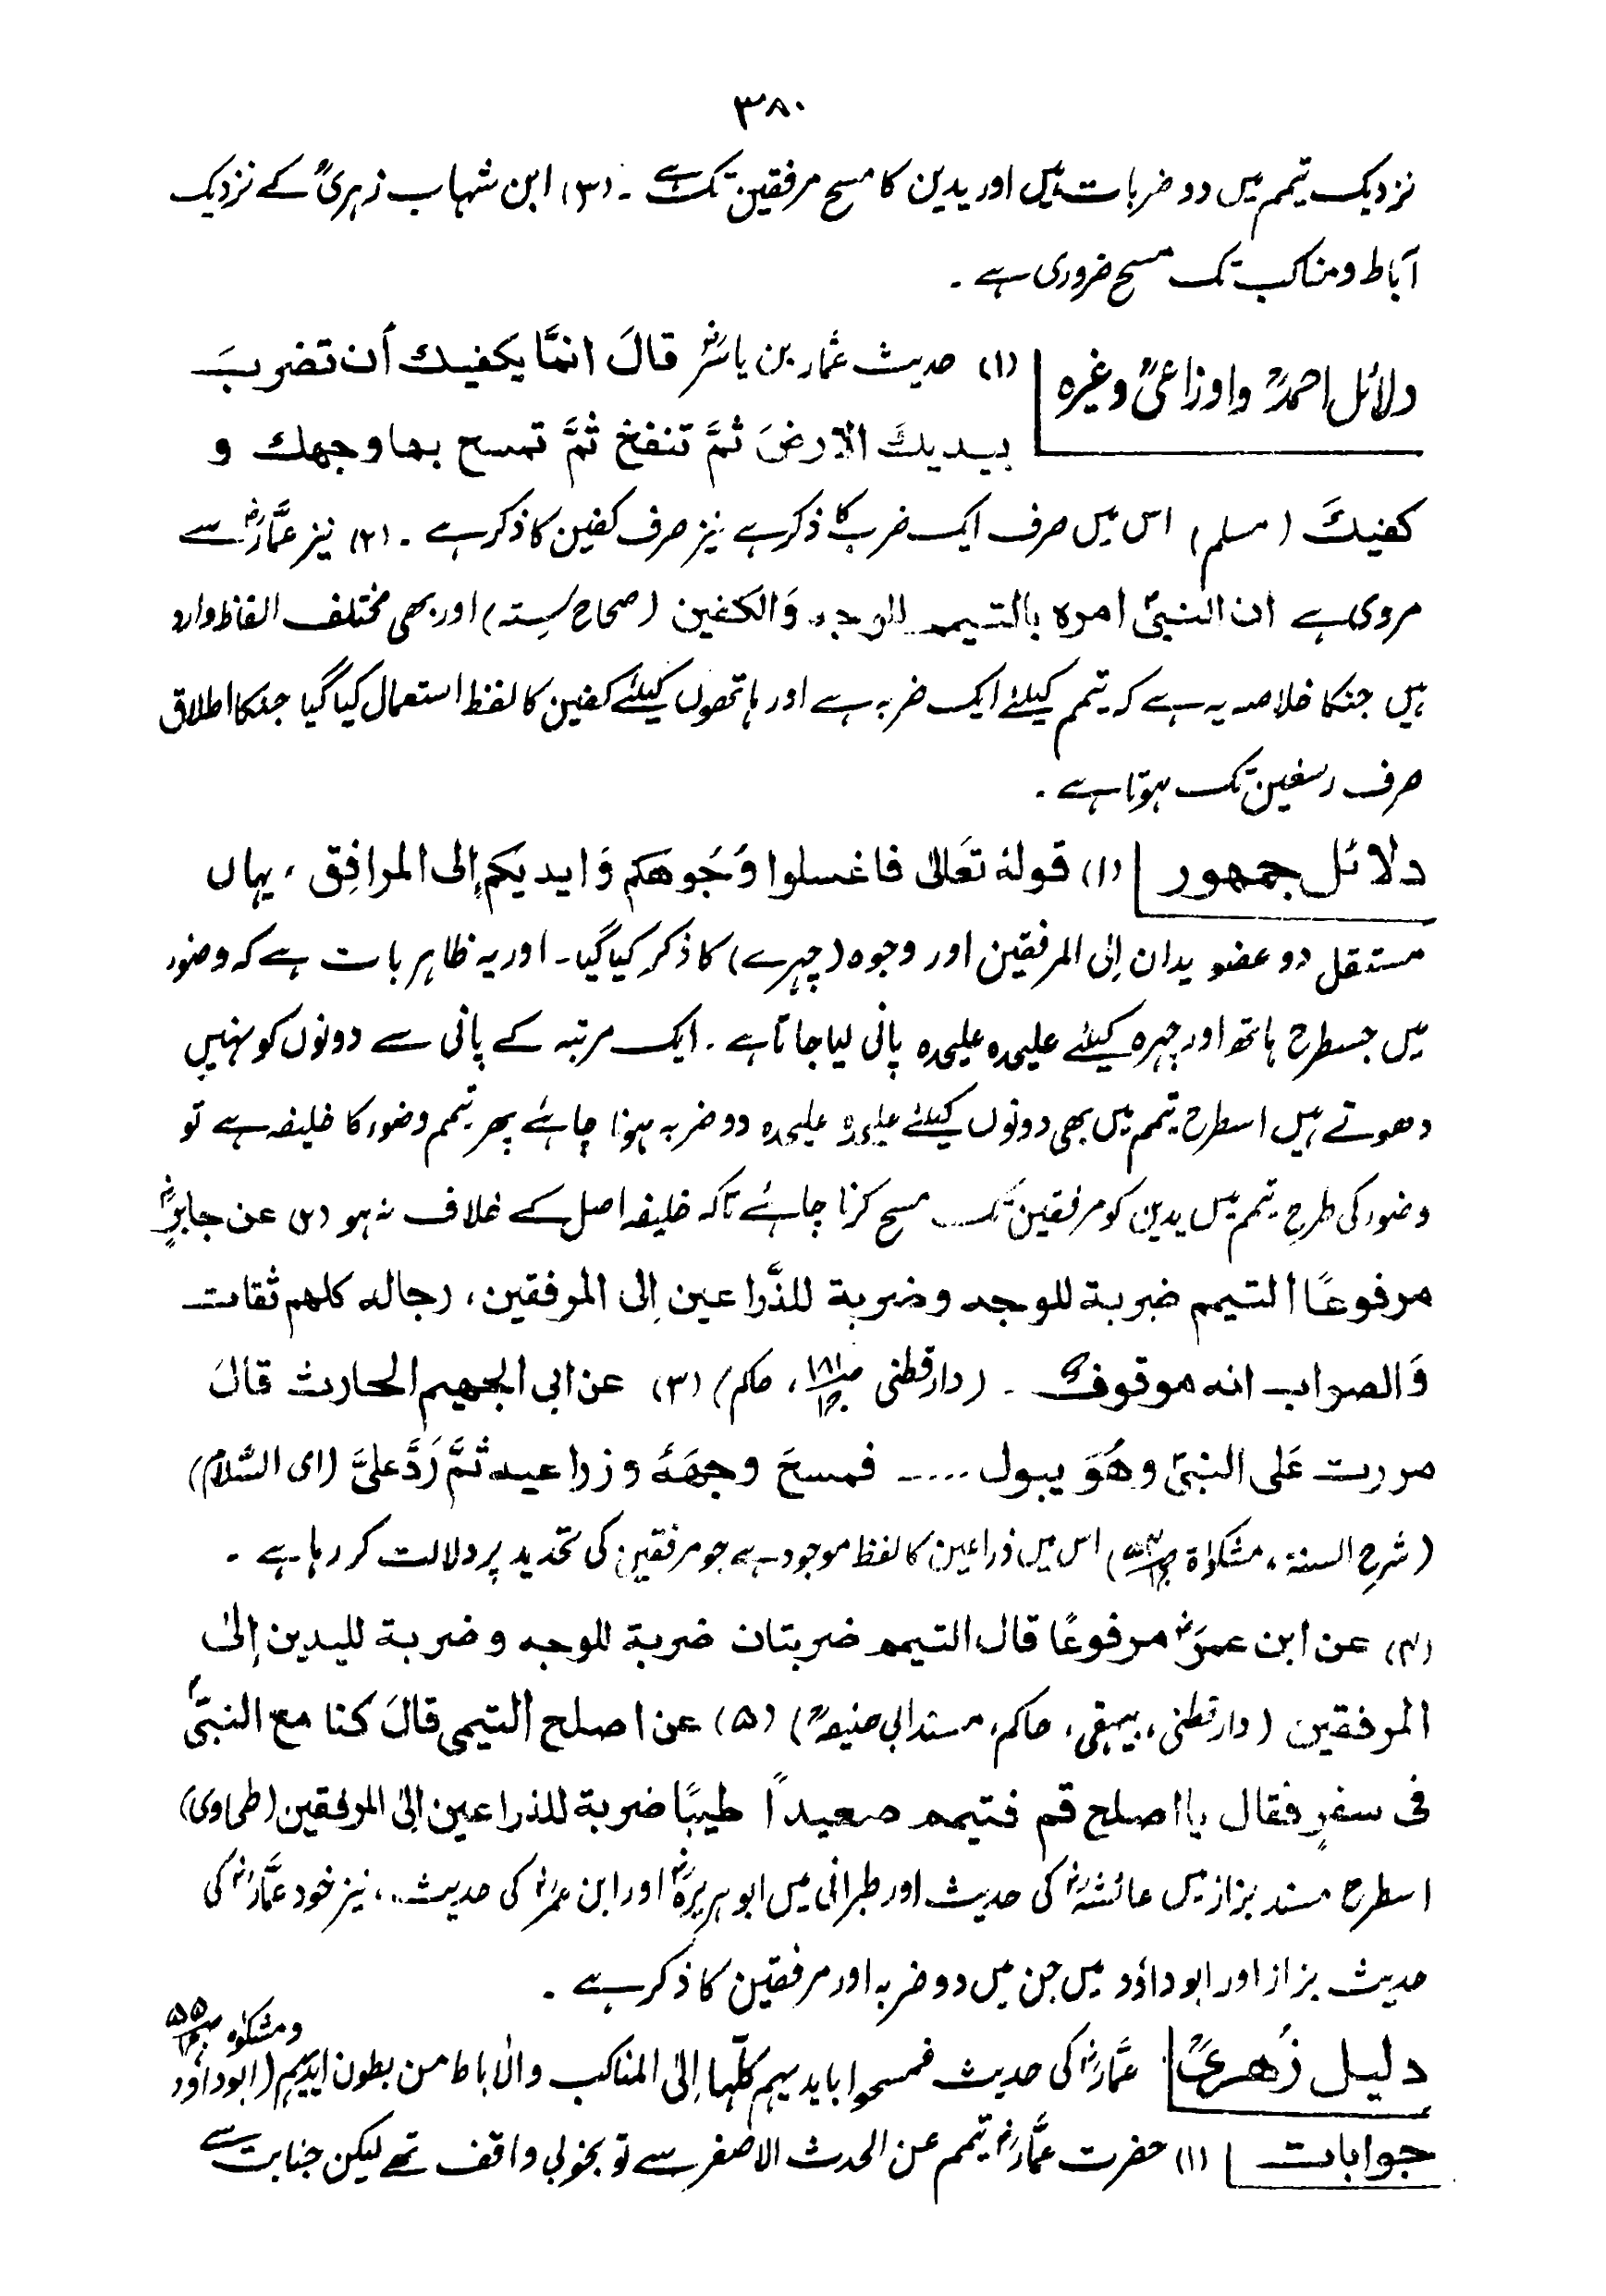 ۳۸۰
نزدیک تیمم میں دو ضربات ہیں اور یدین کا مسح مرفقین تک ہے ۔ (۳) ابن شہاب زہریؒ کے نزدیک
آباط و مناکب تک مسح ضروری ہے ۔
دلائل احمدؒ واوزاعیؒ وغیرہ (۱) حدیث عمّار بن یاسرؓ قالَ انمّا یکفیك أن تضربَ
بیدیكَ الارضَ ثمَّ تنفخ ثمَّ تمسح بهما وجهك و
کفیكَ (مسلم) اس میں صرف ایک ضرب کا ذکر ہے نیز صرف کفین کا ذکر ہے ۔ (۲) نیز عمّارؓ سے
مروی ہے ان النبیؐ امره بالتیمم للوجه وَالکفین (صحاح ستہ) اور بھی مختلف الفاظ وارد
ہیں جنکا خلاصہ یہ ہے کہ تیمم کیلئے ایک ضربہ ہے اور ہاتھوں کیلئے کفین کا لفظ استعمال کیا گیا جنکا اطلاق
صرف رسغین تک ہوتا ہے ۔
دلائل جمهور (۱) قولهٗ تعَالیٰ فاغسلوا وُجُوهَکم وَایدیَکم إلی المرافِق ، یہاں
مستقل دو عضو یدان إلی المرفقین اور وجوہ (چہرے) کا ذکر کیا گیا ۔ اور یہ ظاہر بات ہے کہ وضوء
میں جسطرح ہاتھ اور چہرہ کیلئے علیحدہ علیحدہ پانی لیا جاتا ہے ۔ ایک مرتبہ کے پانی سے دونوں کو نہیں
دھوتے ہیں اسطرح تیمم میں بھی دونوں کیلئے علیحدہ علیحدہ دو ضربہ ہونا چاہئے پھر تیمم وضوء کا خلیفہ ہے تو
وضوء کی طرح تیمم میں یدین کو مرفقین تک مسح کرنا چاہئے تاکہ خلیفہ اصل کے خلاف نہ ہو (۲) عن جابرؓ
مرفوعًا التیمم ضربة للوجه وضربة للذَّراعین إلی المرفقین، رجاله کلهم ثقات
وَالصواب انه موقوف ۔ (دارقطنی ص۱۸۱ ج۱، حاکم) (۳) عن ابی الجهیم الحارث قالَ
مررت عَلی النبیّ وهُوَ یبول ..... فمسحَ وجهَهٗ وزراعیه ثمَّ رَدَّ علیَّ (ای السّلام)
(شرح السنۃ، مشکوٰۃ) اس میں ذراعین کا لفظ موجود ہے جو مرفقین کی تحدید پر دلالت کر رہا ہے ۔
(۴) عن ابن عمرؓ مرفوعًا قال التیمم ضربتان ضربة للوجه وضربة للیدین إلیٰ
المرفقین (دارقطنی، بیہقی، حاکم، مسند ابی حنیفہؒ) (۵) عن اصلح التیمی قالَ کنا مع النبیّؐ
فی سفرٍ فقال یا اصلح قم فتیمم صعیداً طیبًا ضربة للذراعین الیٰ المرفقین (طحاوی)
اسطرح مسند بزاز میں عائشہؓ کی حدیث اور طبرانی میں ابو ہریرہؓ اور ابن عمرؓ کی حدیث ، نیز خود عمّارؓ کی
حدیث بزاز اور ابو داؤد میں جن میں دو ضربہ اور مرفقین کا ذکر ہے ۔
دلیل زُهریؒ عمّارؓ کی حدیث فمسحوا بایدیہم کلّہا إلیٰ المناکب والاٰباط من بطون ایدیہم (ابوداؤد
ومشکوٰۃ ص۵۵ ج۱)
جوابات (۱) حضرت عمّارؓ تیمم عن الحدث الاصغر سے تو بخوبی واقف تھے لیکن جنابت سے